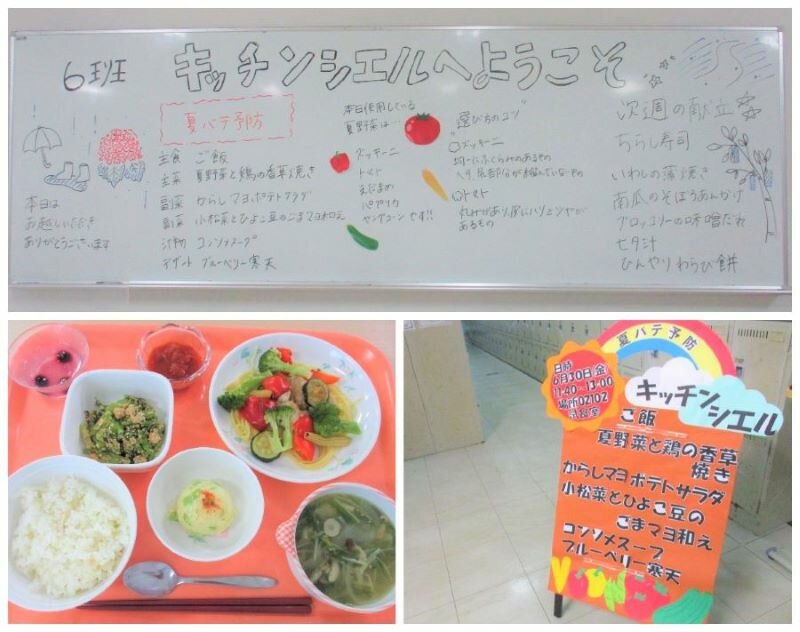 6班 キッチンシエルへようこそ
夏バテ予防
主食 ご飯
主菜 夏野菜と鶏の香草焼き
副菜 からしマヨポテトサラダ
副菜 小松菜とひよこ豆のごまマヨ和え
汁物 コンソメスープ
デザート ブルーベリー寒天
本日は
お越しいただき
ありがとうございます
本日使用している
夏野菜は…
ズッキーニ
トマト
えだまめ
パプリカ
ヤングコーン です!!
選び方のコツ
○ズッキーニ
均一にふくらみのあるもの
○トマト
丸みがあり
あるもの
次週の献立
ちらし寿司
いわしの蒲焼き
南瓜のそぼろあんかけ
ブロッコリーの味噌だれ
七夕汁
ひんやりわらび餅
夏バテ予防
日時
6月30日 金
11:40~13:00
場所02102
キッチン
シエル
ご飯
夏野菜と鶏の香草
焼き
からしマヨポテトサラダ
小松菜とひよこ豆の
ごまマヨ和え
コンソメスープ
ブルーベリー寒天